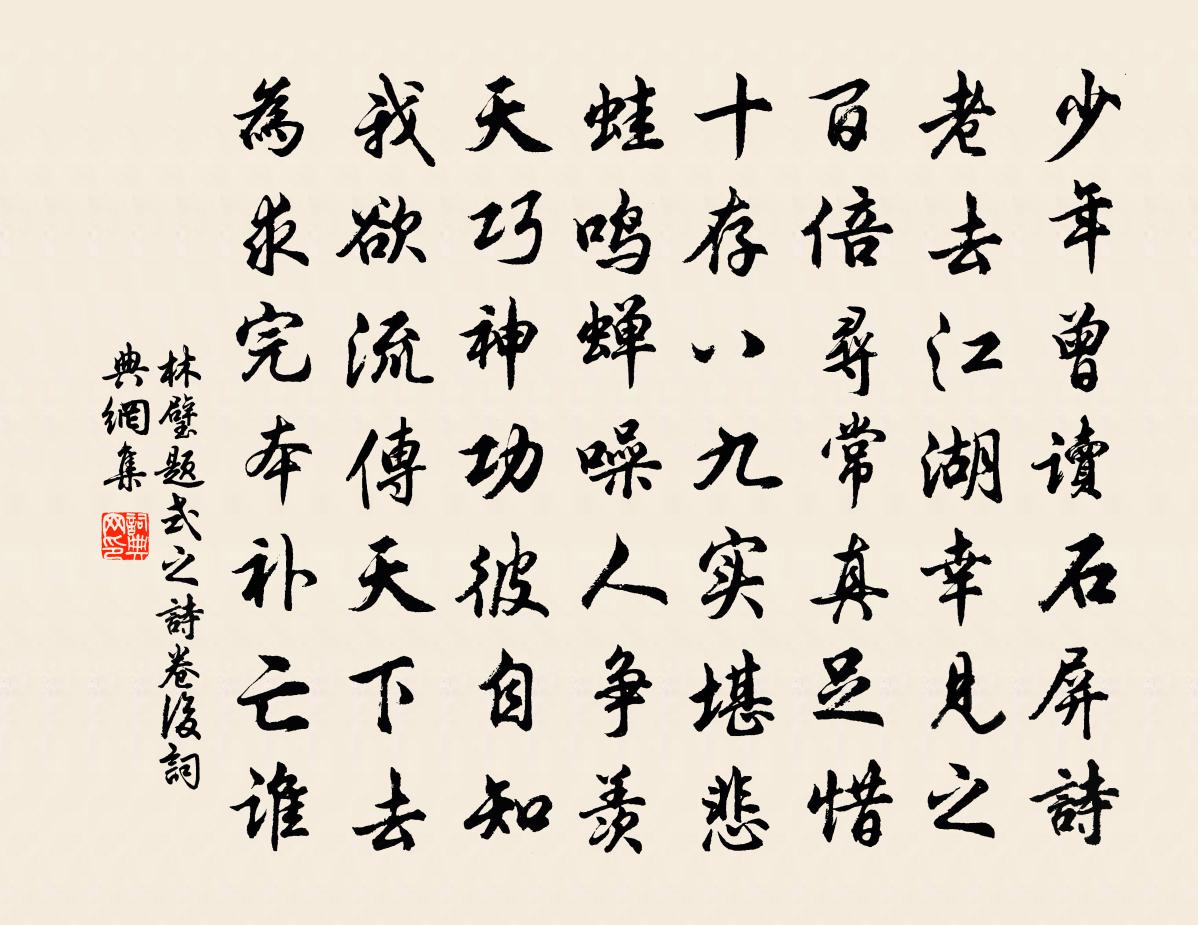 少年曾讀石屏詩
老去江湖幸見之
百倍尋常真足惜
十存八九实堪悲
蛙鸣蝉噪人争羨
天巧神功彼自知
我欲流傳天下去
為求完本补亡谁
林璧題式之詩卷後詞
典網集
詞典网印